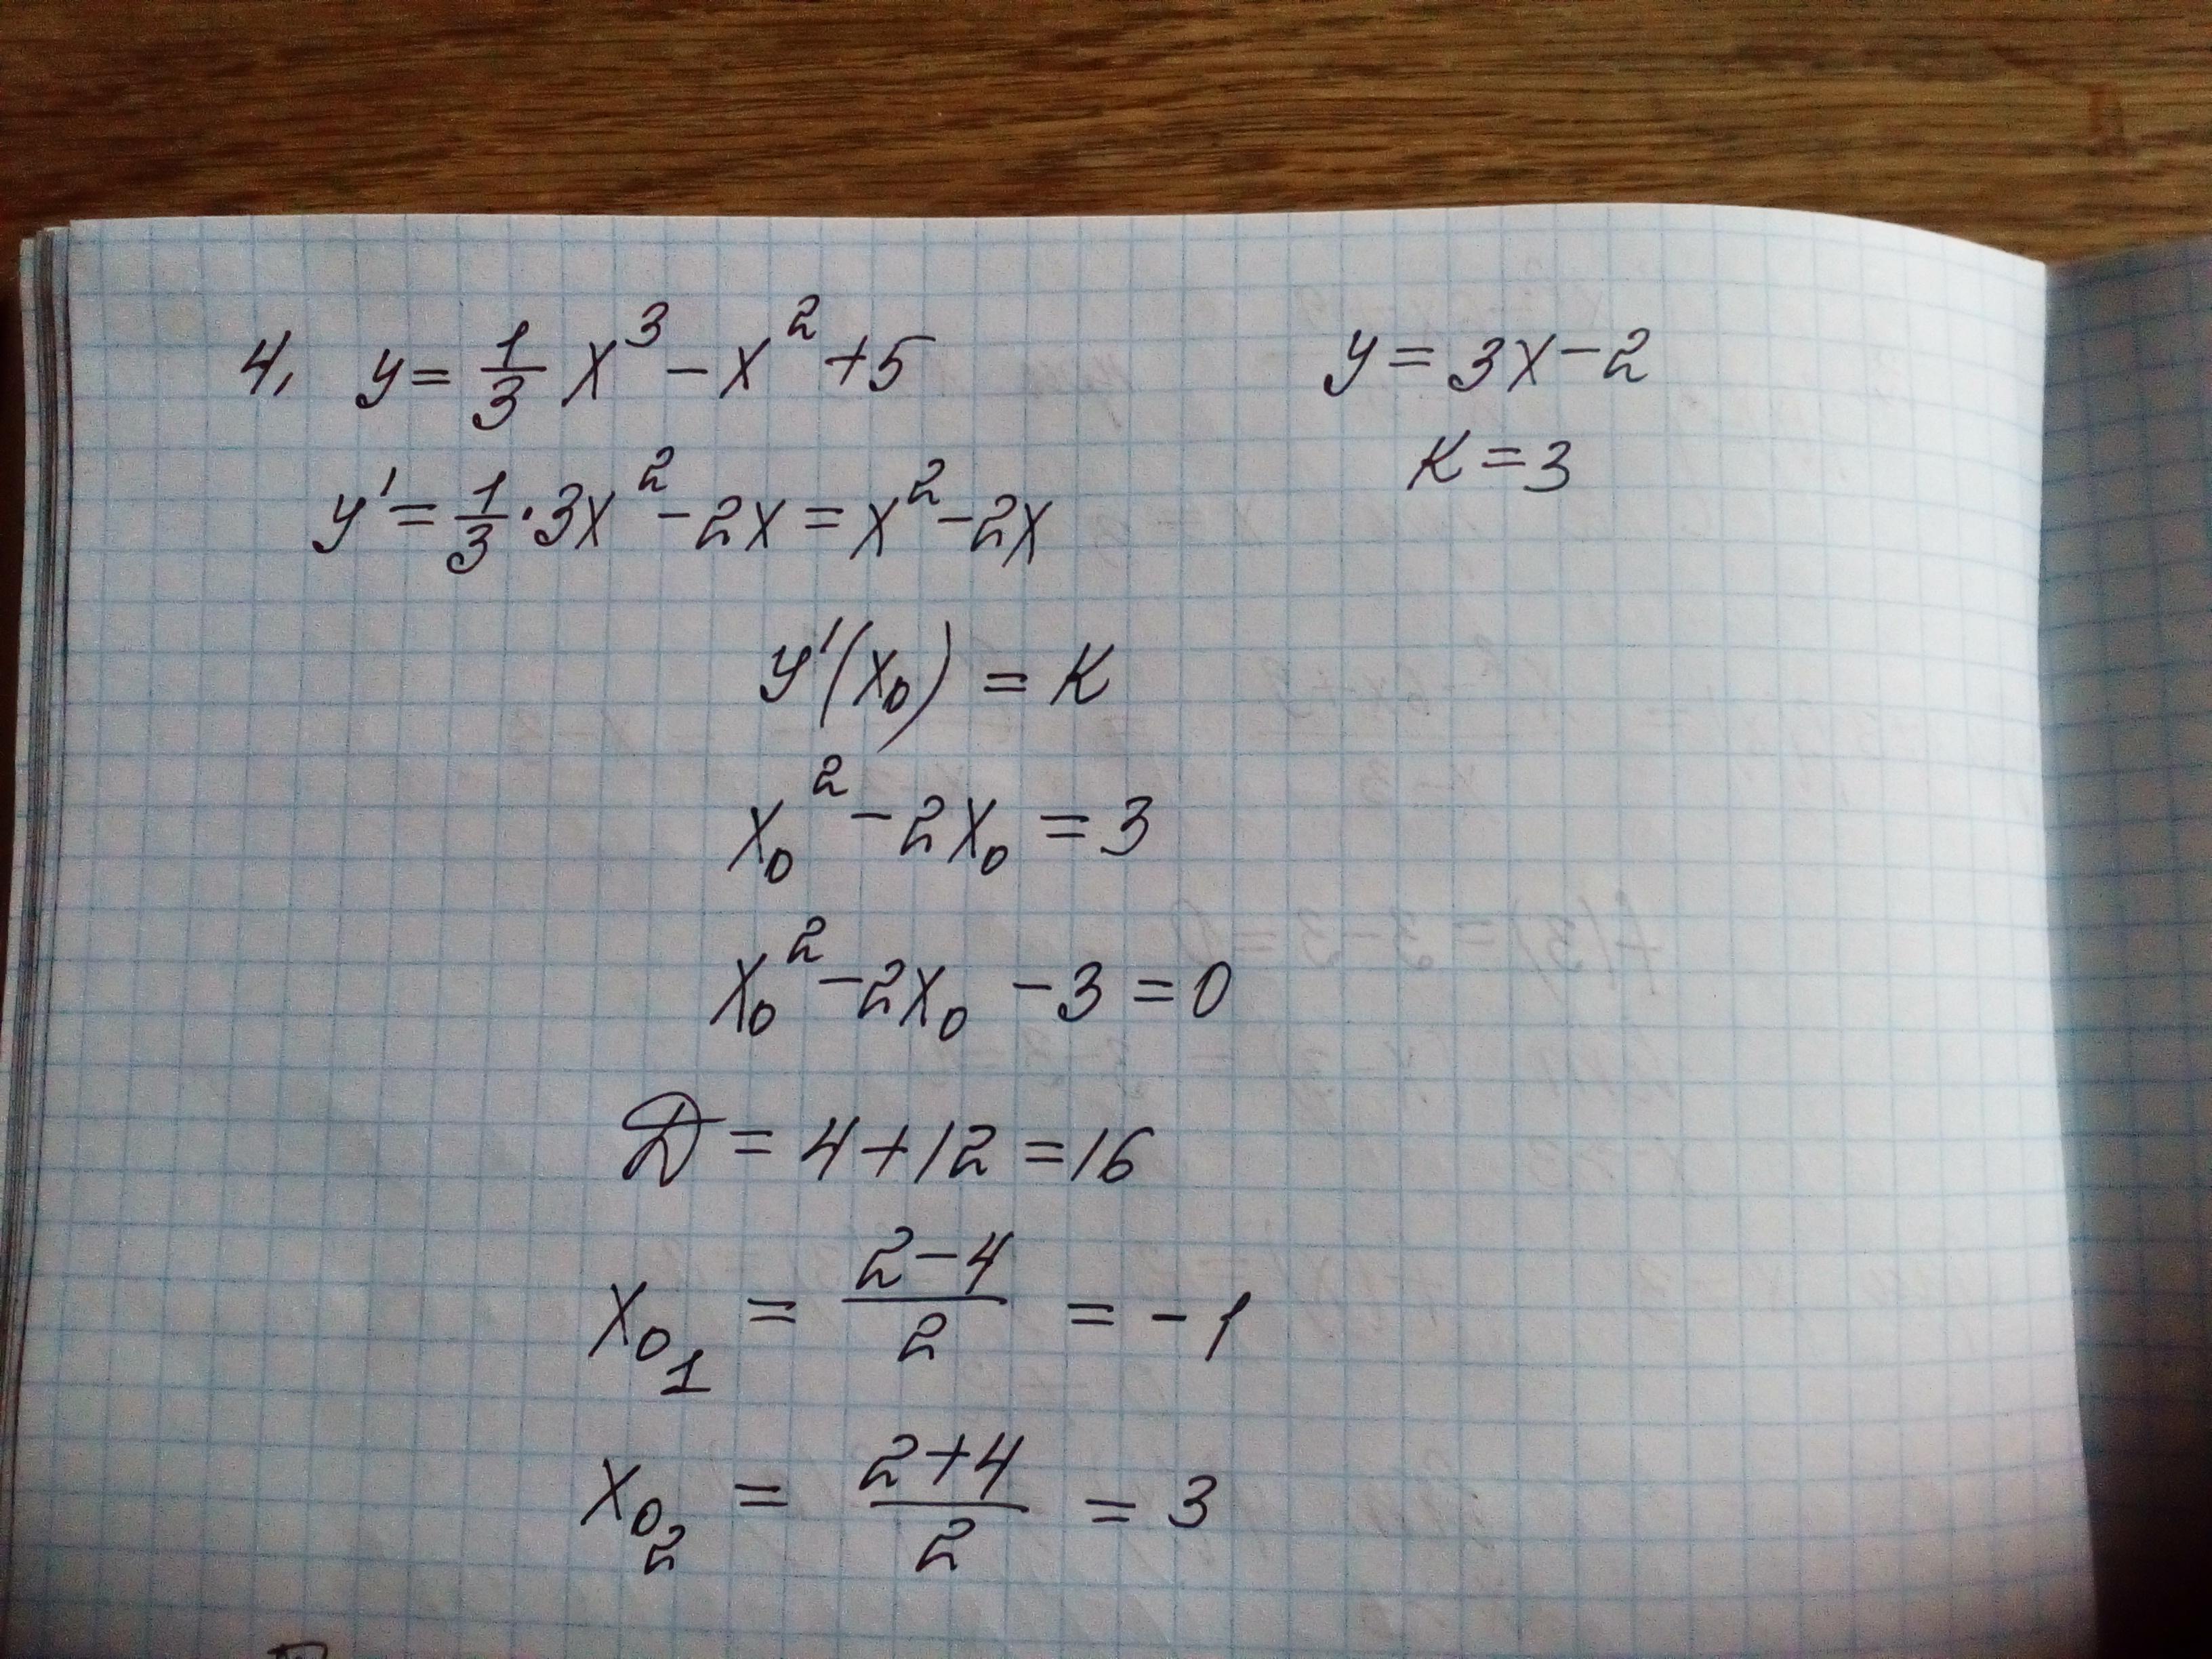 4. y = 1/3 x³ - x² + 5
y = 3x - 2
K = 3
y' = 1/3 · 3x² - 2x = x² - 2x
y'(x₀) = K
x₀² - 2x₀ = 3
x₀² - 2x₀ - 3 = 0
D = 4 + 12 = 16
x₀₁ = (2-4)/2 = -1
x₀₂ = (2+4)/2 = 3